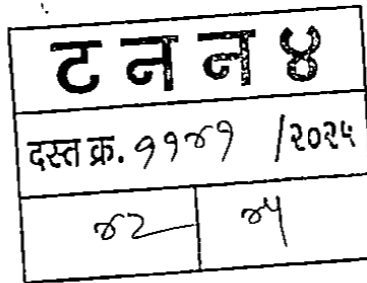 ट न न ४
दस्त क्र. ११४१ /२०२५
४२ ४५